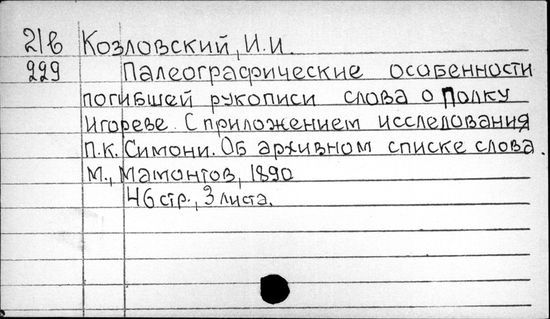 21в Козловский, И.И
229 Палеографические особенности
погибшей рукописи слова о Полку
Игореве. С приложением исследования
П.К. Симони. Об архивном списке слова.
М., Мамонтов, 1890
46 стр., 3 листа.